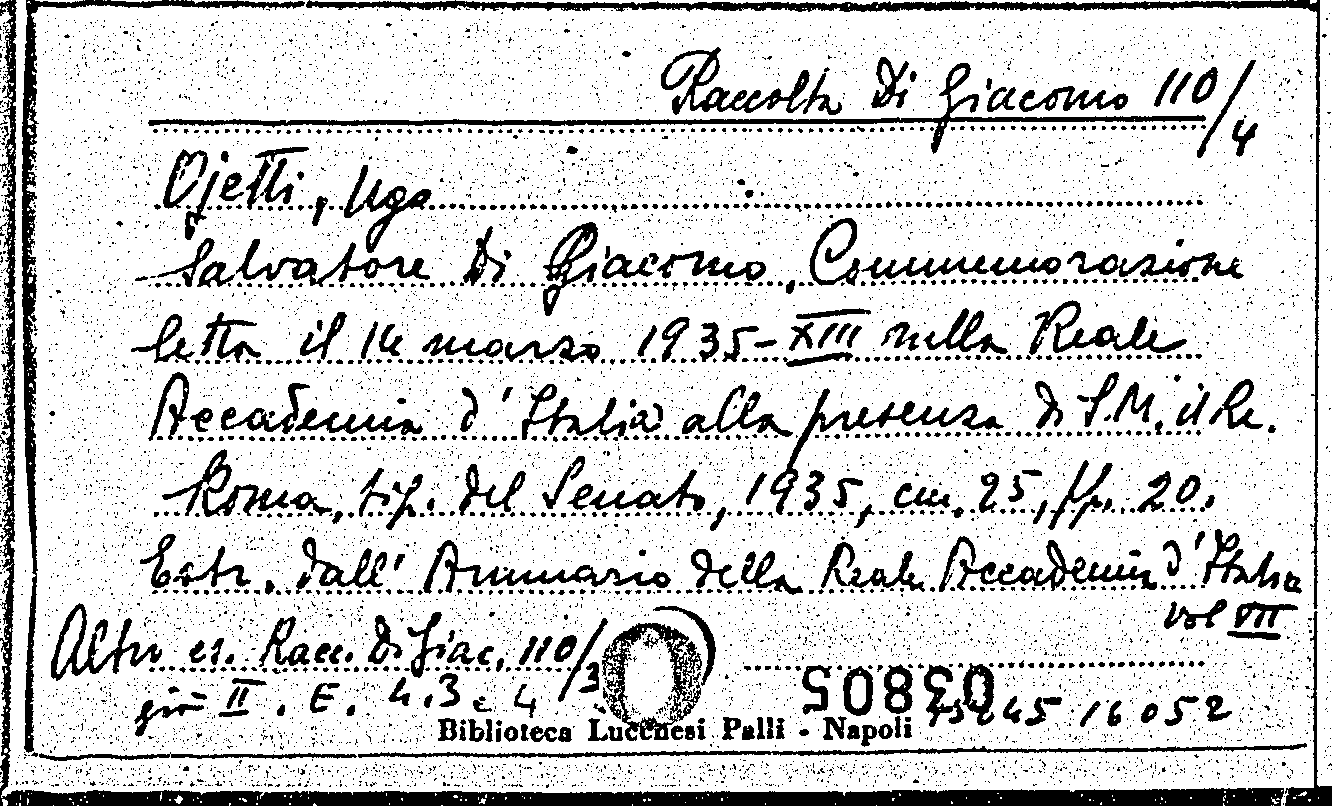 Raccolta Di Giacomo 110/4
Ojetti, Ugo
Salvatore Di Giacomo. Commemorazione
letta il 14 marzo 1935-XIII nella Reale
Accademia d'Italia alla presenza di S.M. il Re.
Roma, tip. del Senato, 1935, cm. 25, pp. 20.
Estr. dall'Annuario della Reale Accademia d'Italia
vol VII
Altro es. Racc. Di Giac. 110/3
già II. E. 4.3 e 4
50830
16052
Biblioteca Lucchesi Palli - Napoli